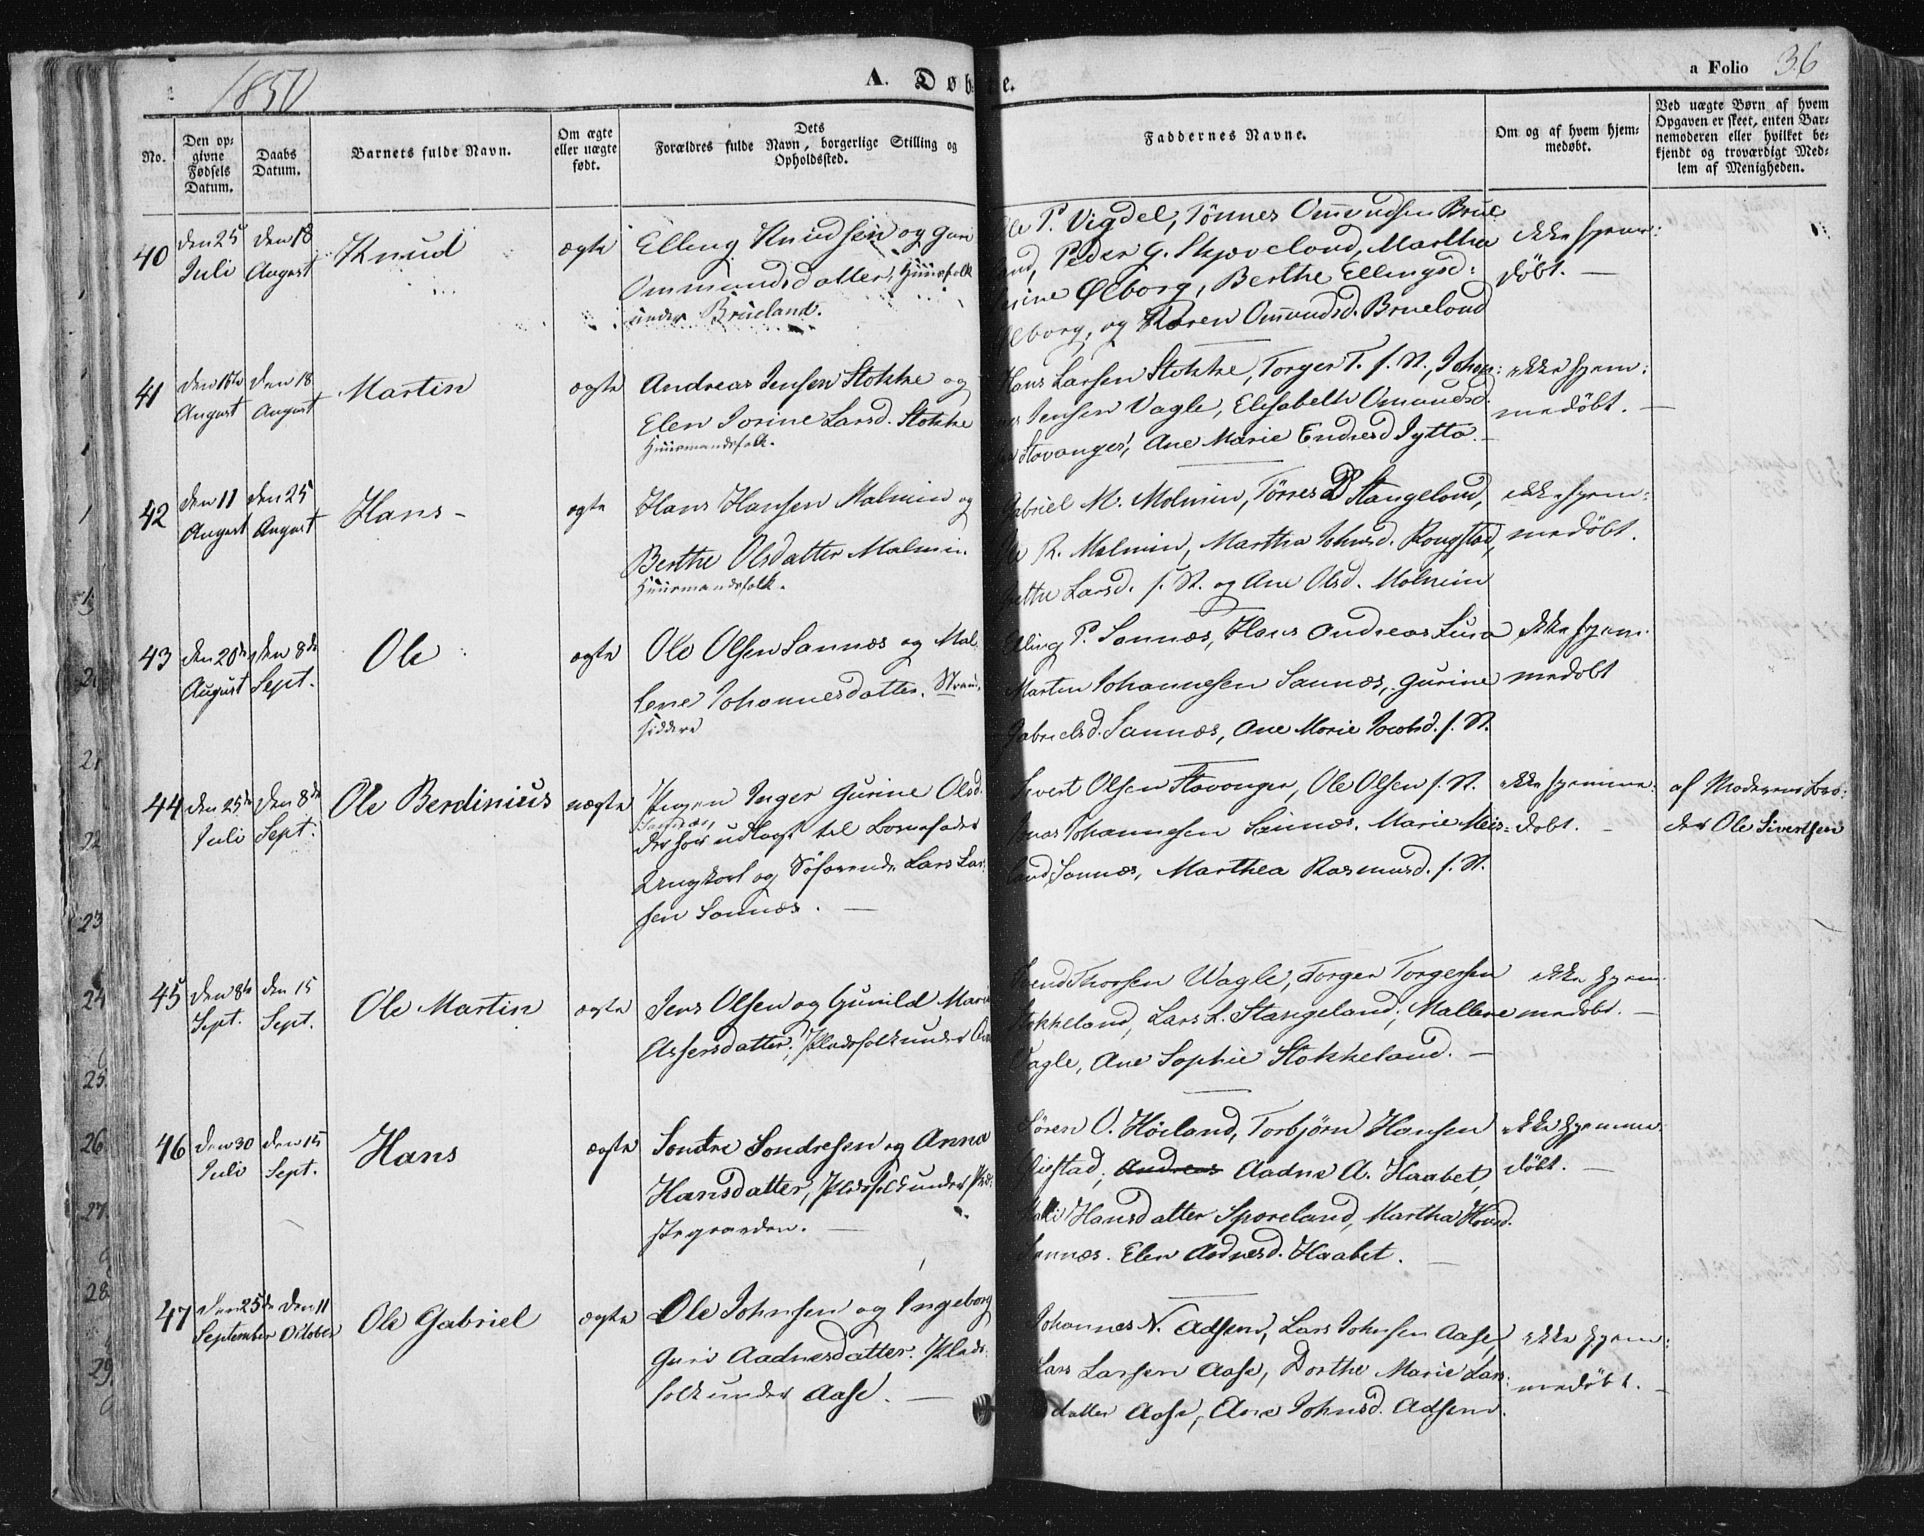 1850
A. Døbte.
a Folio 36
No.
Den opgivne Fødsels Datum.
Daabs Datum.
Barnets fulde Navn.
Om ægte eller uægte født.
Dets Forældres fulde Navn, borgerlige Stilling og Opholdssted.
Faddernes Navne.
Om og af hvem hjemmedøbt.
Ved uægte Børn af hvem Opgaven er skeet, enten Barnemoderen eller hvilket bekjendt og troværdigt Medlem af Menigheden.
40
den 25 Juli
den 18 August
Knud
ægte
Elling Knudsen og Guri
Ommundsdatter, Huusfolk
under Brueland.
P. Vigdel, Tönnes Omundsen Brue
Peder G. Skjæveland, Martha
Ølborg, Berthe Ellingsd:
og Karen Omundsd. Brueland
ikke hjem:
döbt. —
41
den 16de August
den 18 August
Martin
ægte
Andreas Jensen Stokke og
Elen Jorine Larsd. Stokke
Huusmandsfolk.
Hans Larsen Stokke, Torger T. s. St., Johan:
Jensen Vagle, Elisabeth Omundsd.
Stavanger, Ane Marie Endresd
ikke hjem:
medöbt. —
42
den 11 August
den 25 August
Hans -
ægte
Hans Hansen Malmin og
Berthe Olsdatter Malmin.
Huusmandsfolk.
Gabriel M. Malmin, Törres B Stangeland,
Ole R. Malmin, Martha Johnsd. Rougstad,
Larsd. s. St. og Ane Olsd. Malmin
ikke hjem:
medöbt.
43
den 20de August
den 8de Sept.
Ole
ægte
Ole Olsen Sannæs og Mal
lene Johannesdatter, Strand
siddere
Elling P. Sannæs, Hans Andreas Lura
Marten Johannesen Sannæs, Gurine
Gabrielsd. Sannæs, Ane Marie Jacobsd. s. St.
Ikke hjem
medöbt
44
den 25de Juli
den 8de Sept.
Ole Berdinius
uægte
Pigen Inger Gurine Olsd.
Sannæs,
der har udlagt til Barnefader
Ungkarl og Söfarende Lars Lar
sen Sannæs. —
Sivert Olsen Stavanger, Ole Olsen s. St.
Jonas Johannesen Sannæs, Marie Meis
land Sannæs, Marthea Rasmusd. s. St.
ikke hjemme
döbt. —
af Moderens bro:
der Ole Sivertsen
45
den 8de Sept.
den 15 Sept.
Ole Martin
ægte
Jens Olsen og Gunild Marie
Assersdatter. Pladsfolk under
Svend Thorsen Wagle, Torger Torgersen
Stokkeland, Lars L. Stangeland, Mallene
Vagle, Ane Sophie Stokkeland. —
ikke hjem
medöbt. —
46
den 30 Juli
den 15 Sept.
Hans
ægte
Sondre Sondresen og Anna
Hansdatter, Pladsfolk under Præ
stegaarden. —
Sören O. Höiland, Torbjörn Hansen
Andreas Aadne A. Haabet,
Malli Hansdatter Sporeland, Martha Hansd.
Sannæs. Elen Aadnesd. Haabet. —
ikke hjemme
döbt. —
47
den 25de September
den 11 October
Ole Gabriel
ægte
Ole Johnsen og Ingeborg
Guri Aadnesdatter. Plads
folk under Aase. —
Johannes N. Adsen, Lars Johnsen Aase,
Lars Larsen Aase, Dorthe Marie Lars
datter Aase, Ane Johnsd. Adsen.
ikke hjem:
medöbt. —
24
25
26
27.
28
29.
22
23
21